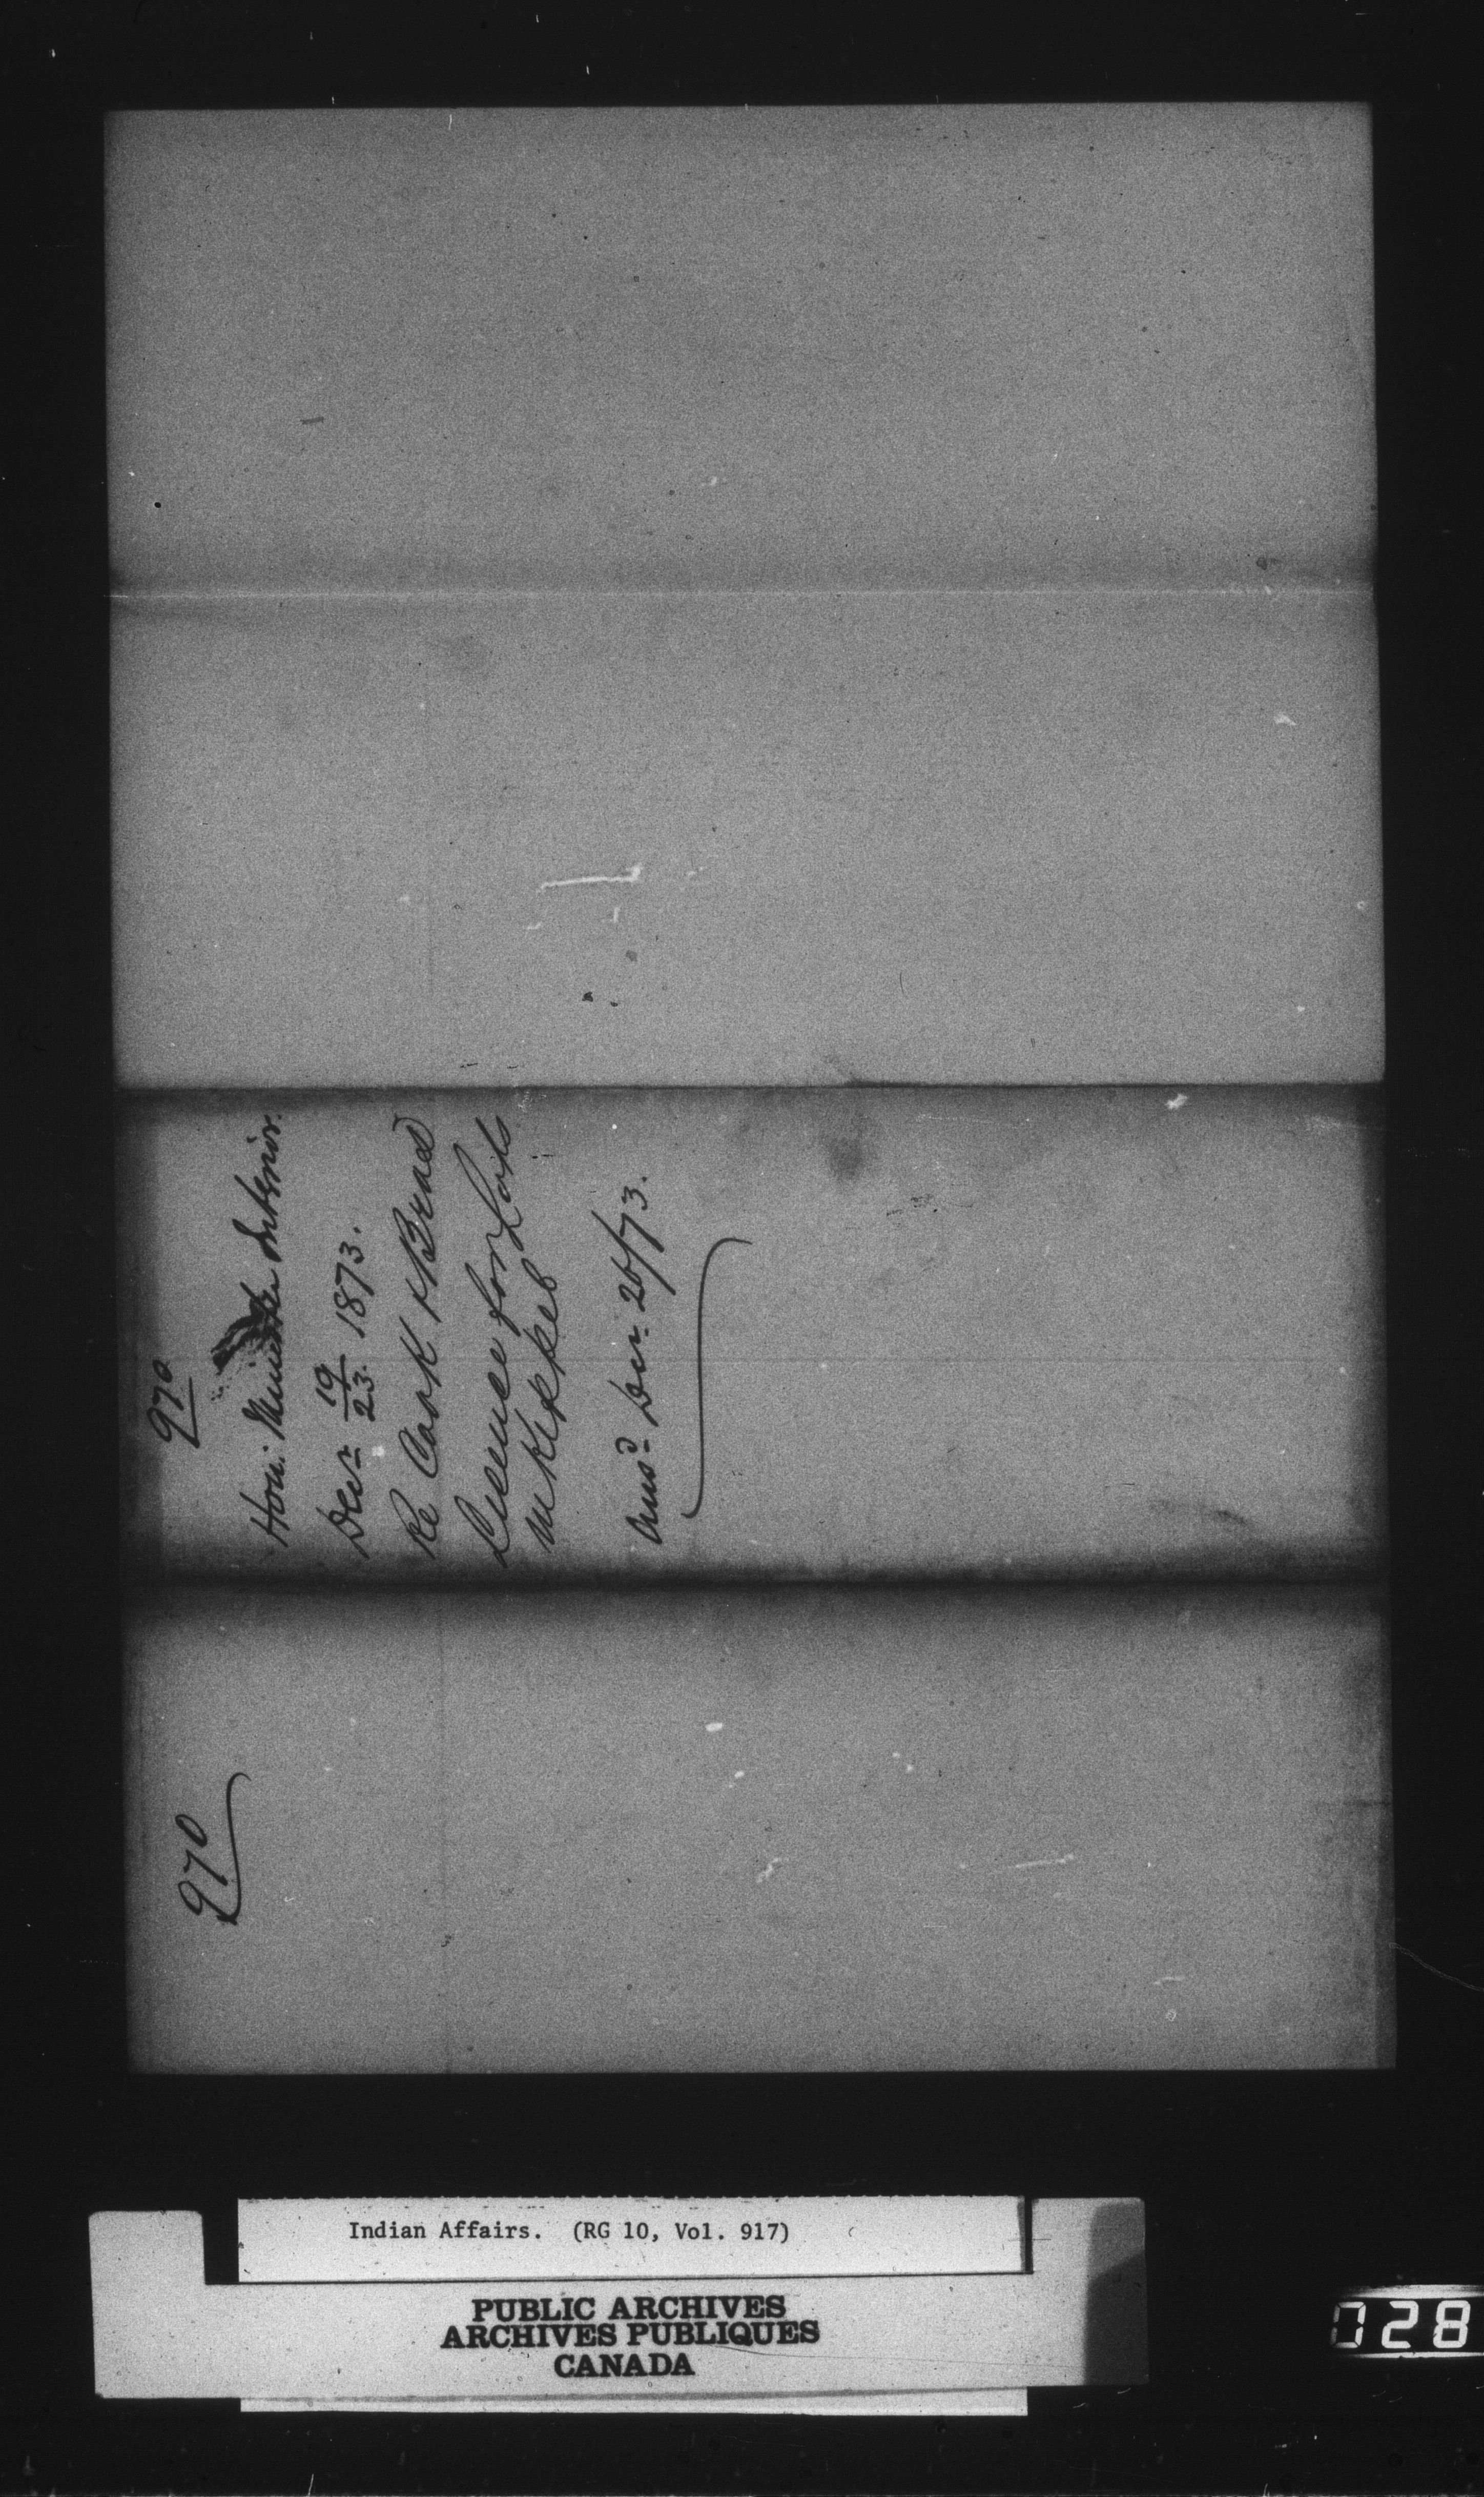 970
Hon. Minister Interior.
Decr 19/23. 1873.
Re Cook & Bros
License for Lots
in Keppel
Ansd Decr 26/73.
970
Indian Affairs. (RG 10, Vol. 917)
PUBLIC ARCHIVES
ARCHIVES PUBLIQUES
CANADA
028